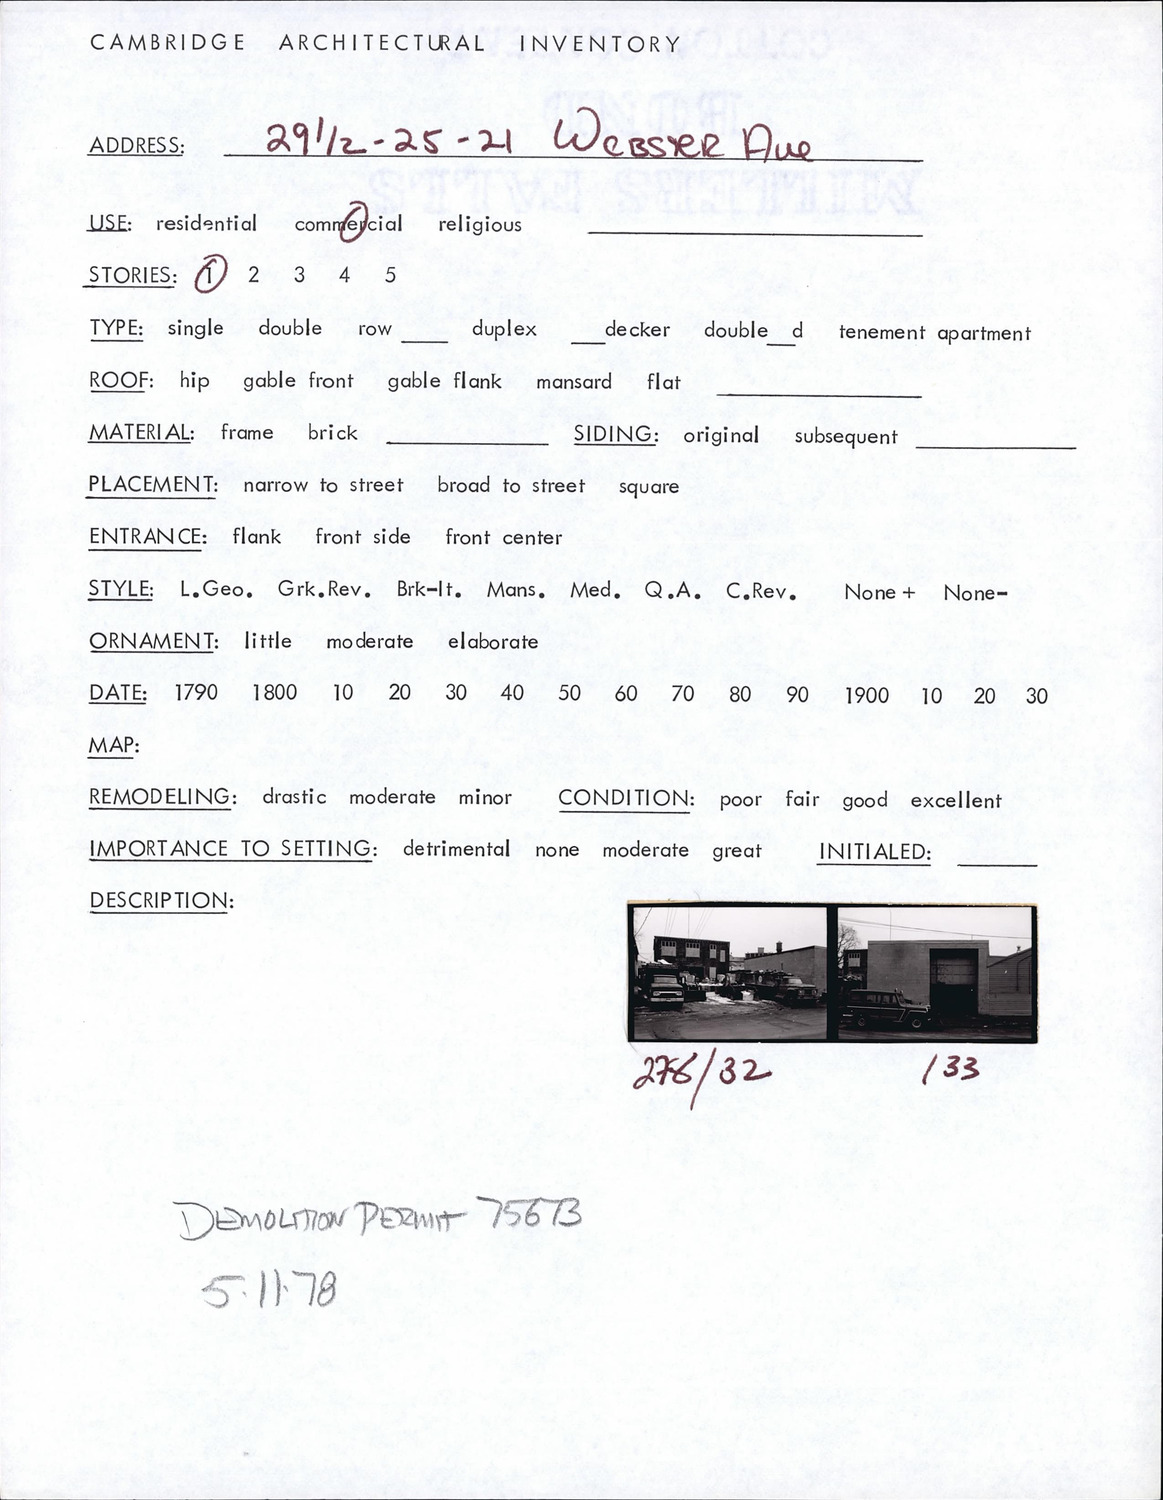 CAMBRIDGE ARCHITECTURAL INVENTORY
ADDRESS: 29 1/2 - 25 - 21 WEBSTER AVE
USE: residential commercial religious
STORIES: 1 2 3 4 5
TYPE: single double row ____ duplex ____decker double__d tenement apartment
ROOF: hip gable front gable flank mansard flat
MATERIAL: frame brick ____ SIDING: original subsequent ____
PLACEMENT: narrow to street broad to street square
ENTRANCE: flank front side front center
STYLE: L.Geo. Grk.Rev. Brk-It. Mans. Med. Q.A. C.Rev. None + None-
ORNAMENT: little moderate elaborate
DATE: 1790 1800 10 20 30 40 50 60 70 80 90 1900 10 20 30
MAP:
REMODELING: drastic moderate minor CONDITION: poor fair good excellent
IMPORTANCE TO SETTING: detrimental none moderate great INITIALED: ____
DESCRIPTION:
276/32 /33
DEMOLITION PERMIT 75673
5·11·78